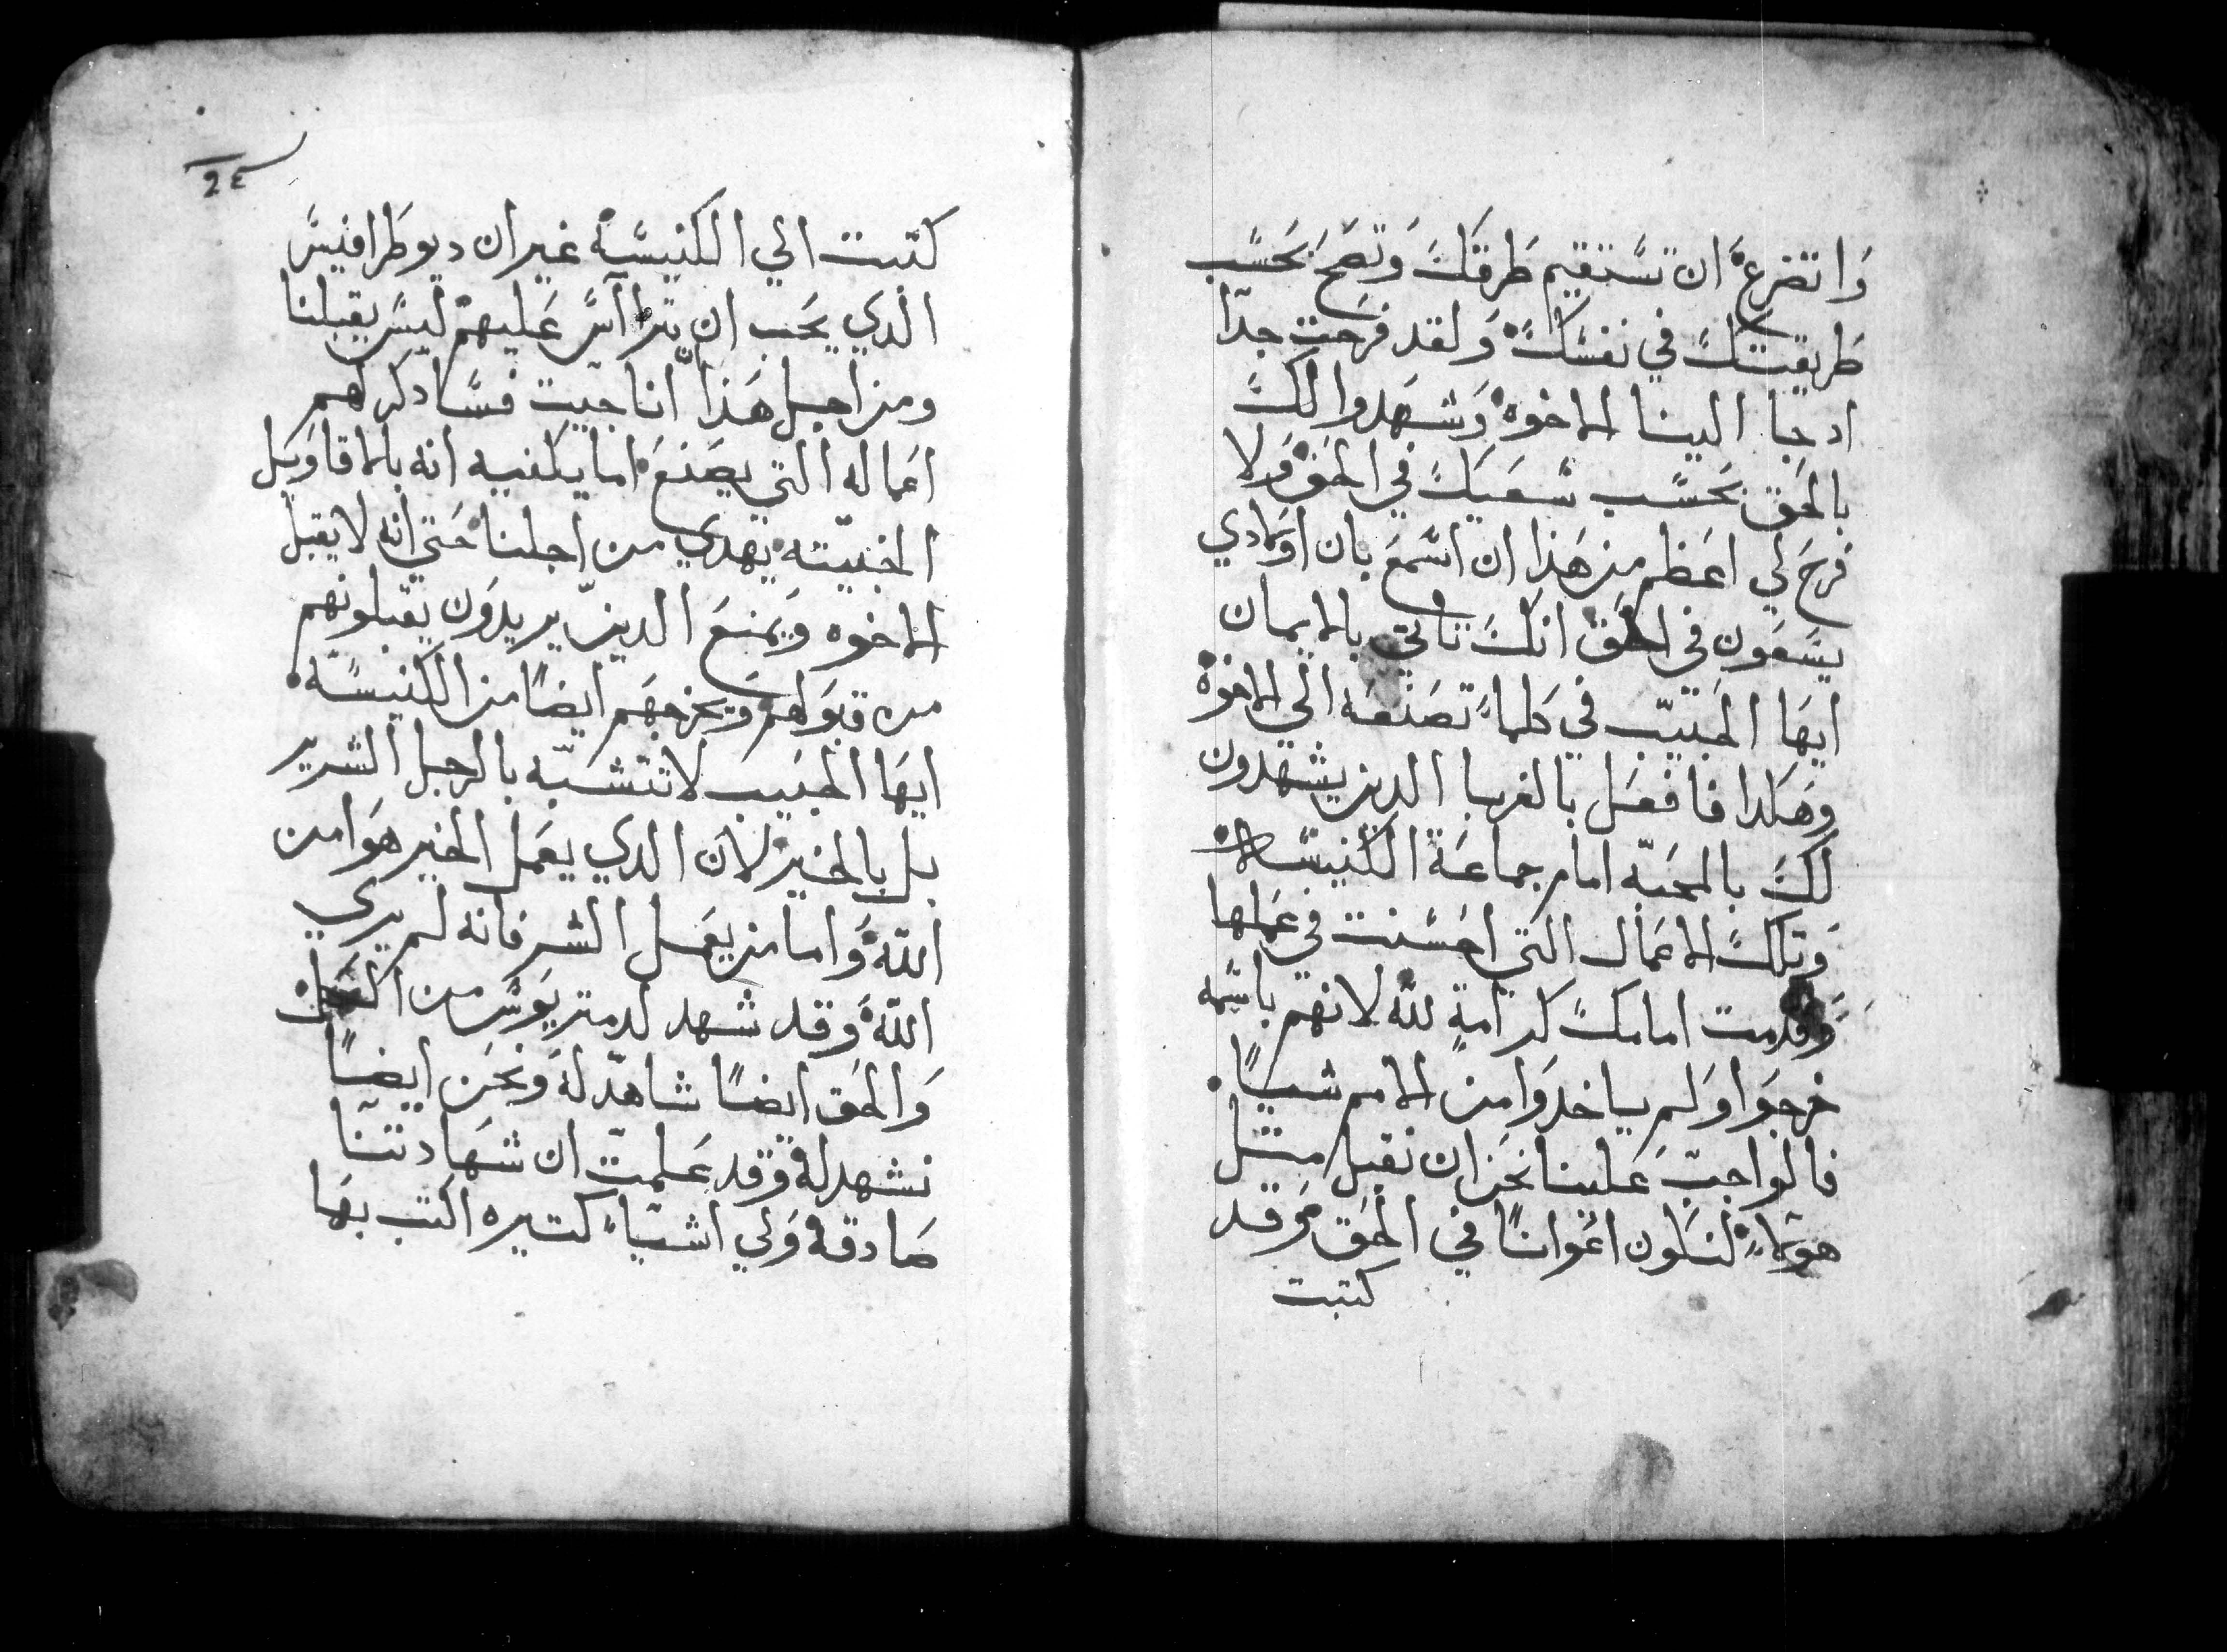 وَاتضرع ان تسَتقيم طرقَكَ وَتصَح بحَسَب
طَريقتكَ في نفسَكَ وَلقد فرحت جدًا
ادجا الينا الاخوه وَشهَدوا لكَ
بالحَق بحَسَب سَعيَكَ في الحَق وَلا
فرحَ لي اعَظم من هَذا ان اسَمعَ بان اوَلادي
يسَعَون في الحق انكَ تاتي بالايمان
ايهَا الحَبيبّ في كلماء تصَنعَه الي الاخوة
وهَكدا فافعَل بالغربا الدين يشهدون
لكَ بالمحَبّه امام جماعَة الكنيسَه
وَتلكَ الاعَمال التي احَسَنت في عَملها
وَقدمت امامكَ كرامةٍ للّه لانهم باسَمه
خرجوَا وَلم ياخدوَا من الامم شياً
فالواجبّ عَلينا نحَن ان نقبل مثل
هوَلاءِ لنكون اعَوانًا في الحَق وَقد
كتبت
24
كتبت الي الكنيسَه غير ان ديوطرافيسَ
الدي يحَب ان يتراآسَ عَليهم ليسَ يقبلنا
ومن اجل هَذا انا جيت فسَادكر لهم
اعَماله التي يصَنعَ اما يكفيه انه بالاقاوَيل
الخبيته يهدي من اجلنا حَتي انه لا يقبل
الاخوه وَيمنعَ الدين يريدوَن يقبلونهم
من قبوَلهم وَيخرجهَم ايضًا من الكنيسَه
ايهَا الحَبيب لا تتشبّه بالرجل الشرير
بل بالخير لان الدي يعَمل الخير هوَا من
اللّه وَاما من يعَمل الشر فانه لم يري
اللّه وَقد شهد لدمتريوَسَ من الكل
وَالحَق ايضًا شاهدّ له وَنحَن ايضًا
نشهد له وَقد عَلمتّ ان شهَادتنا
صَادقه وَلي اشيّاء كتيره اكتب بهَا